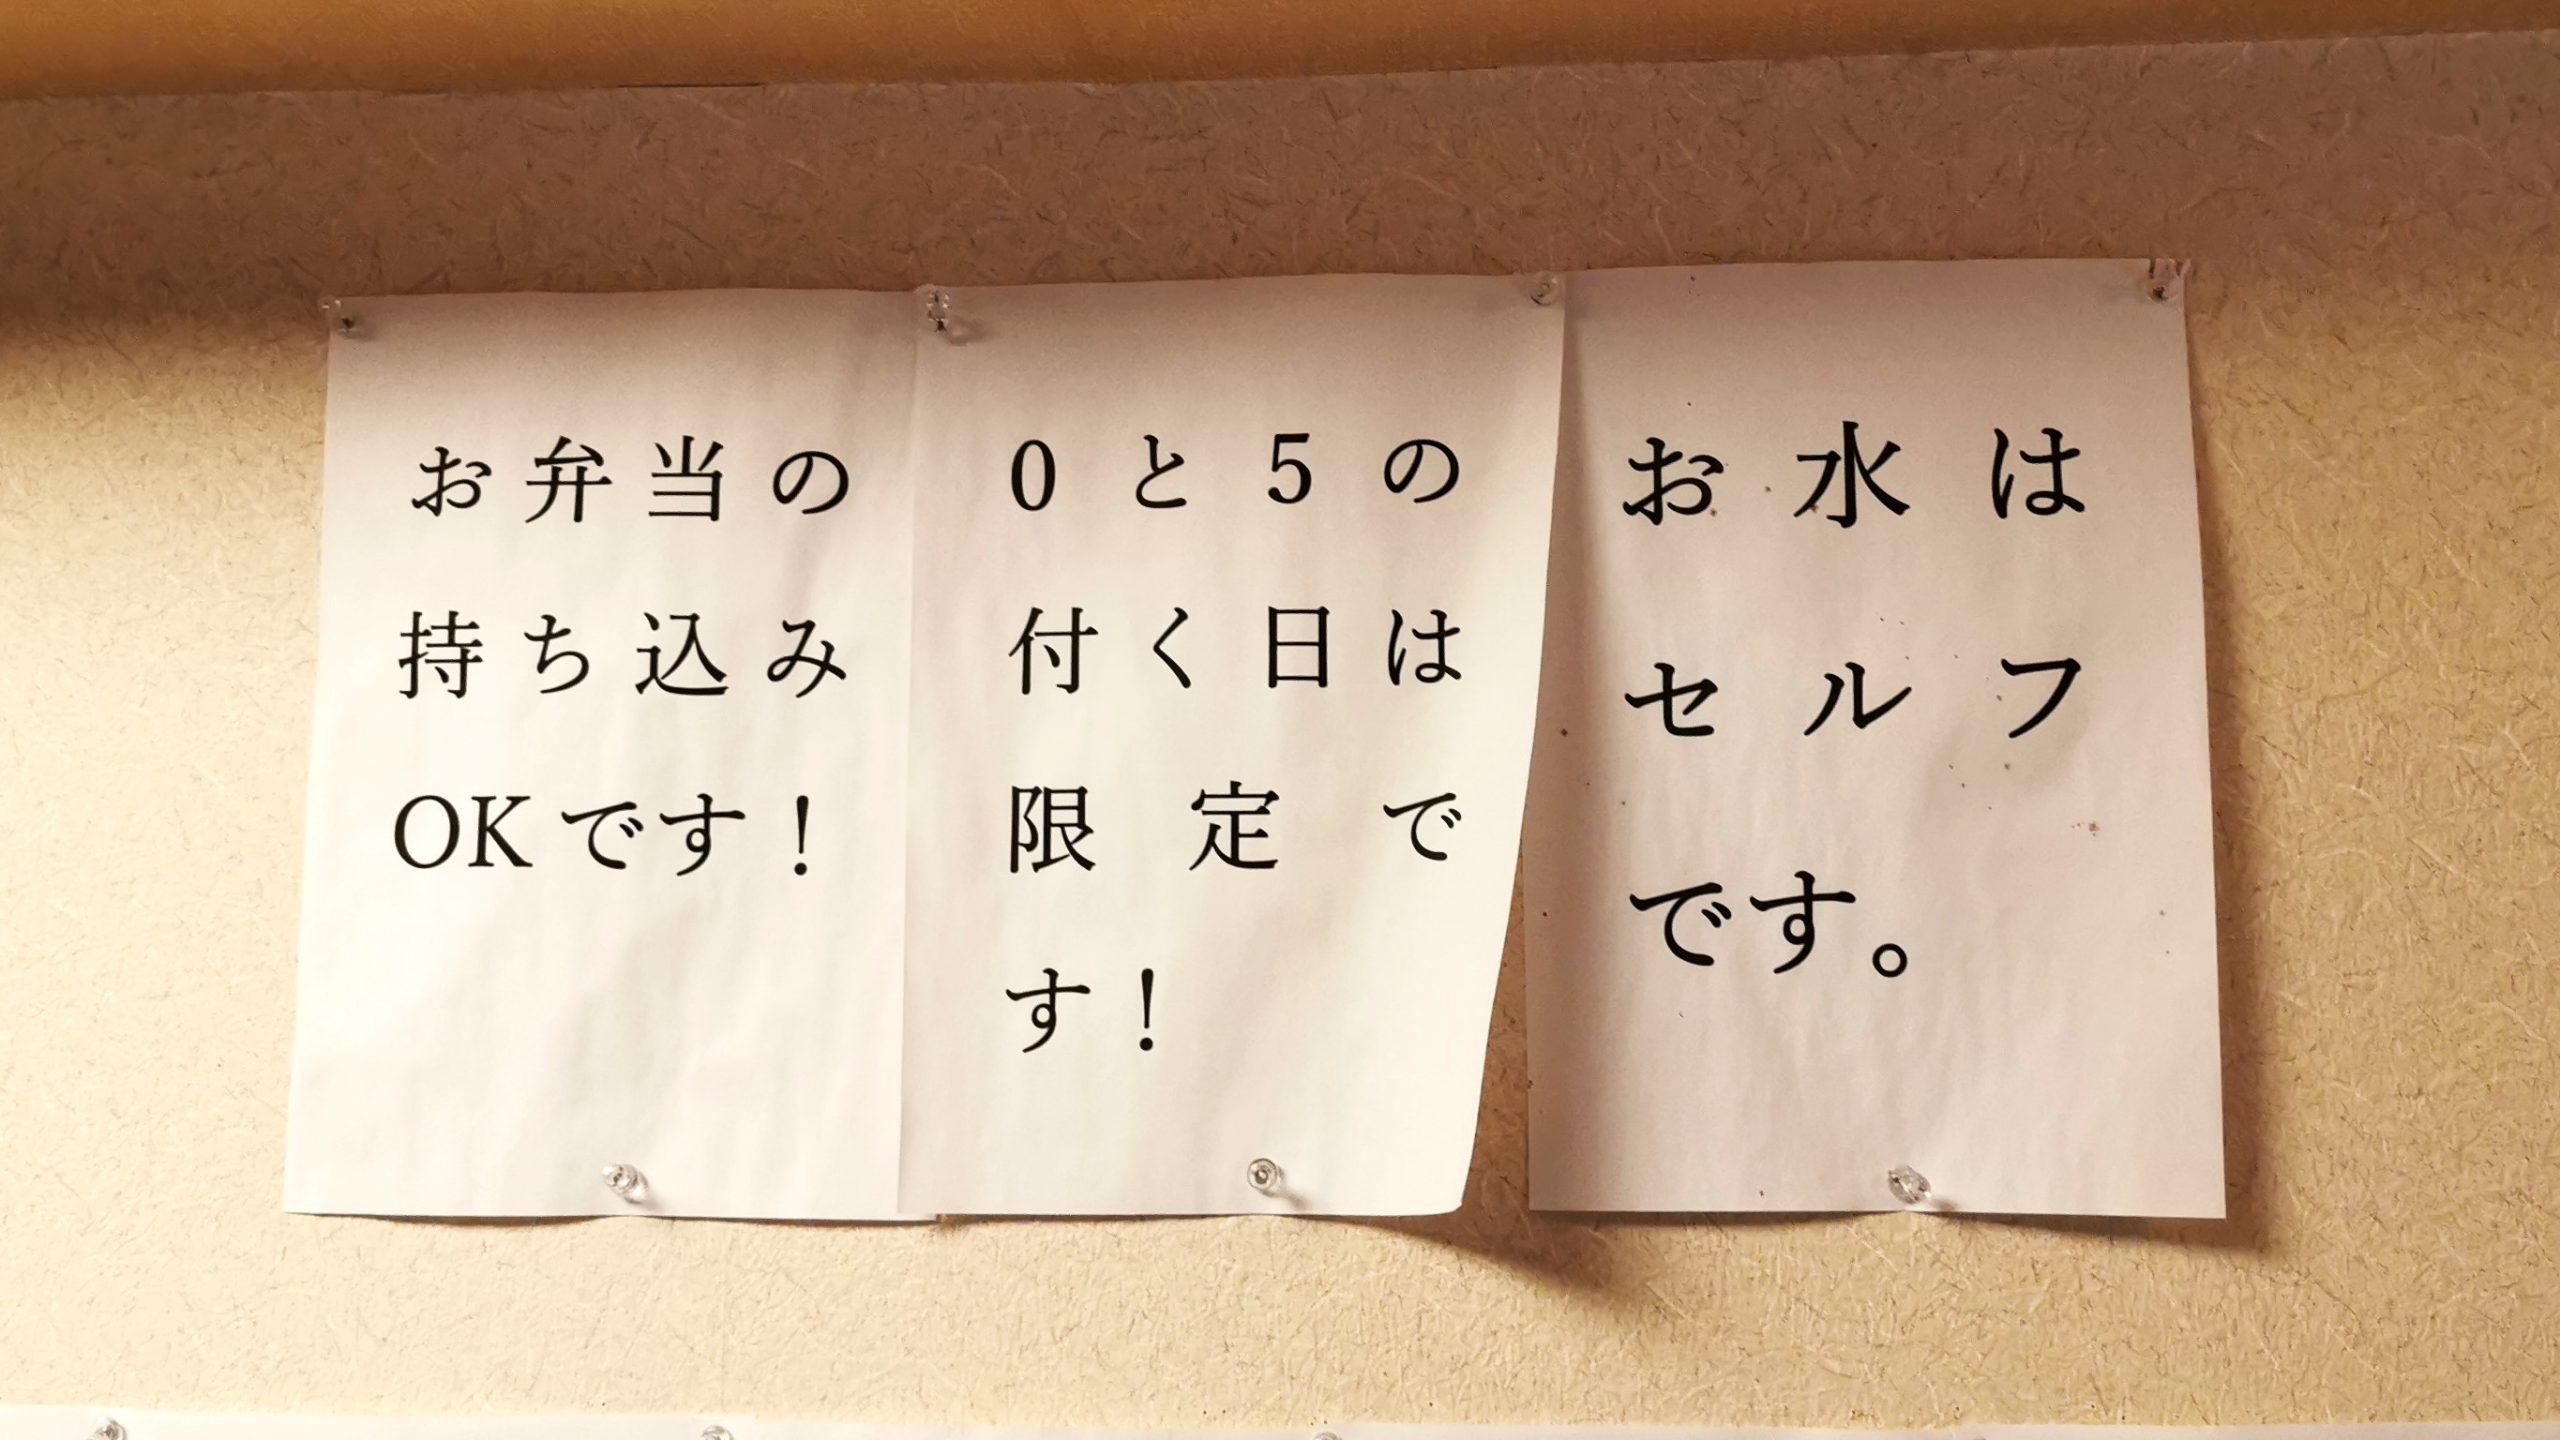 お弁当の
持ち込み
OKです！
0と5の
付く日は
限定で
す！
お水は
セルフ
です。